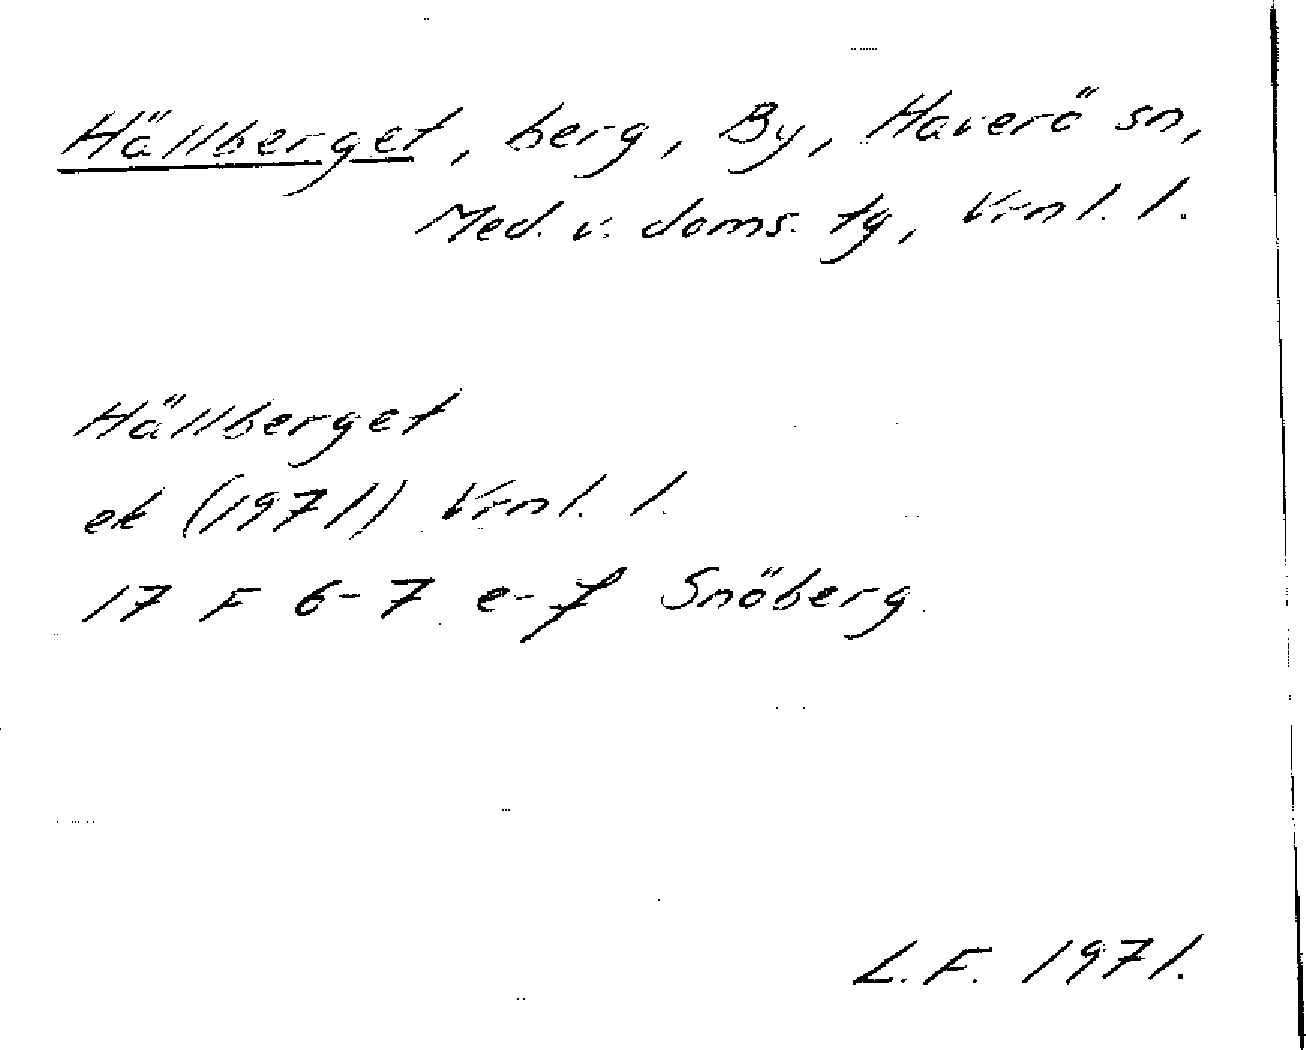 Hällberget, berg, By, Haverö sn,
Med. v. doms. tg, Vrnl. l.
Hällberget
ek (1971) Vrnl. l.
17 F 6-7 e-f Snöberg
L.F. 1971.